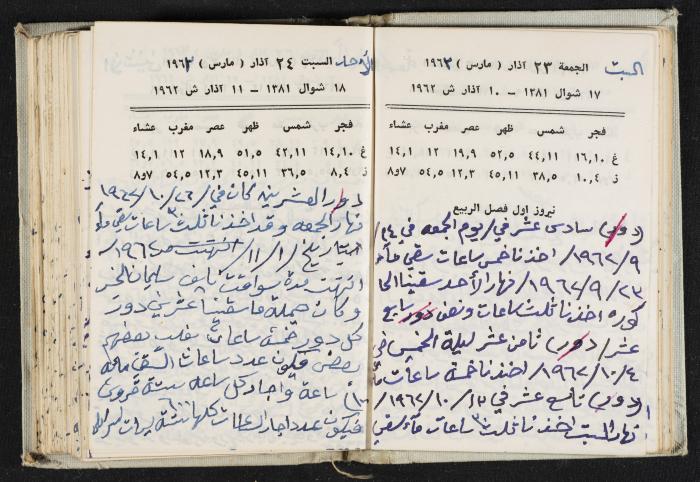 السبت
الجمعة ٢٣ آذار ( مارس ) ١٩٦٢
١٧ شوال ١٣٨١ – ١٠ آذار ش ١٩٦٢
فجر شمس ظهر عصر مغرب عشاء
غ ١٦,١٠ ٤٤,١١ ٥٢,٥ ١٩,٩ ١٢ ١٤,١
ز ١٠,٤ ٣٨,٥ ٤٥,١١ ١٢,٣ ٥٤,٥ ٨و٧
نيروز اول فصل الربيع
(دور) سادس عشر في / يوم الجمعه في ١٤/
٩/١٩٦٢/ اخذنا خمس ساعات سقي ماء
٢٣/٩/١٩٦٢/ نهار الأحد سقينا الحا
كوره اخذنا ثلث ساعات ونصف دور سابع
عشر/ دور) ثامن عشر ليلة الخميس في
٤/١٠/١٩٦٢/ اخذنا خمسة ساعات ماء
(دور) تاسع عشر في /١٣/١٠/١٩٦٢/
نهار السبت اخذنا ثلث ساعات ماء سقي
الأحد
السبت ٢٤ آذار ( مارس ) ١٩٦٢
١٨ شوال ١٣٨١ – ١١ آذار ش ١٩٦٢
فجر شمس ظهر عصر مغرب عشاء
غ ١٤,١٠ ٤٢,١١ ٥١,٥ ١٨,٩ ١٢ ١٤,١
ز ٨,٤ ٣٦,٥ ٤٥,١١ ١٢,٣ ٥٤,٥ ٨و٧
دور العشرين كان في/٢٦/١٠/١٩٦٢
نهار الجمعه وقد اخذنا ثلث ساعات سقي ماء
تاريخ /١/١١/ انتهت ١٩٦٢/
انتهت مدة
وكان جملة ما سقينا عشرين دور
كل دور خمسة ساعات بعضهم
بعض فيكون عدد ساعات السقي مايه
(١٠٠) ساعة واجار كل ساعه ستة قروش
فيكون عدد اجار الساعات كلها ستة ليرات